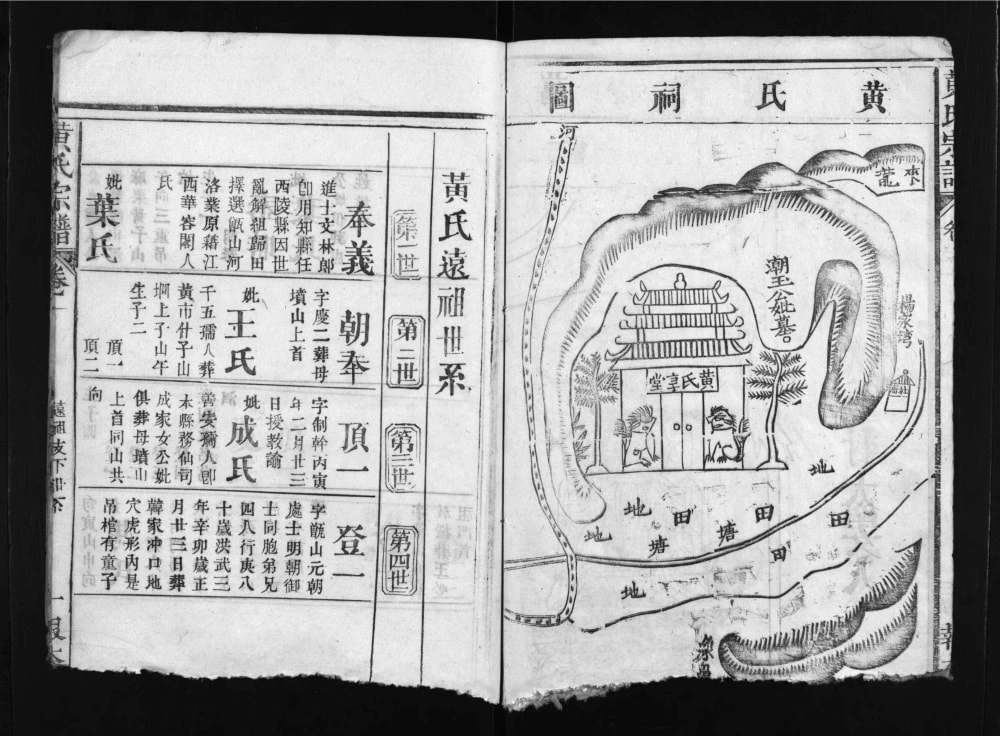 黃氏祠圖
河
來龍
潮玉公妣墓
楊家灣
社壇
黃氏享堂
地
田
塘
地
田
塘
田
地
地
黃氏宗譜
卷
黃氏遠祖世系
第一世
第二世
第三世
第四世
奉義
進士文林郎
卽用知縣任
西陵縣因世
亂解組歸田
擇選甑山河
洛業原藉江
西華容閣人
氏
妣葉氏
朝奉
字慶二葬母
墳山上首
妣王氏
千五孺人葬
黃市什子山
垇上了山午
向
生子二
頂一
頂二
頂一
字制幹丙寅
年二月廿三
日授教諭
妣成氏
善安孺人卽
本縣務仙司
成家女公妣
俱葬母墳山
上首同山共
登一
字甑山元朝
處士明朝御
士同胞弟兄
四人行庚八
十歲洪武三
年辛卯歲正
月廿三日葬
韓家冲口地
穴虎形內是
吊棺有童子
黃氏宗譜
卷一
遠祖支下世系
一